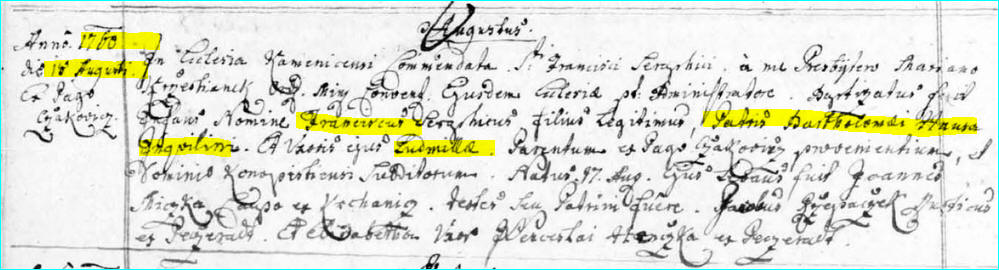 Augustus.
Anno. 1760
die 18 Augusti.
Ex Pago
Czakovicz.
In Ecclesia Kamenicensi Commendata St Francisci Seraphici. à me Presbytero Mariano
Ord. Min. Convent. Ejusdem Ecclesiæ pt. Administratore. Baptizatus fuit
Infans Nomine Franciscus Seraphicus filius legitimus, Patris Bartholomæi Hawra
Inquilini. Et Uxoris ejus Ludmillæ. Parentum ex Pago Czakovicz provenientium, et
Dominio Konopisticensi Subditorum. Natus 17. Aug. Ejus Levans fuit Joannes
ex Krchanicz. testes seu Patrini fuere. Jacobus Rusticus
ex Peczeradt. Et Elisabetha Uxor Wenceslai ex Peczeradt.